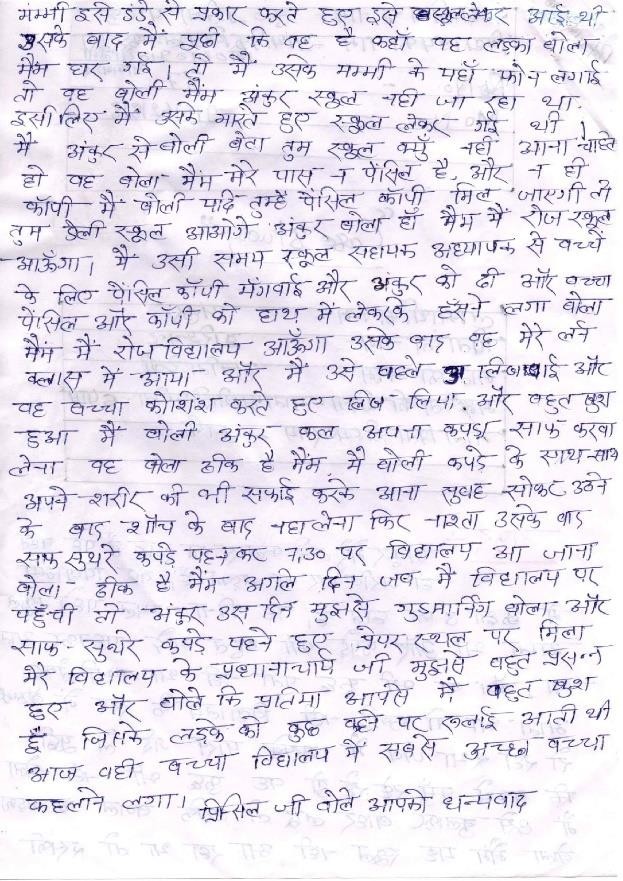 मम्मी इसे डंडे से प्रकार करते हुए इसे स्कूल लेकर आई थी
उसके बाद मैं पूछी कि वह है कहाँ वह लड़का बोला
मैम घर गई। तो मैं उसके मम्मी के यहाँ फोन लगाई
तो वह बोली मैम अंकुर स्कूल नही जा रहा था
इसीलिए मैं उसको मारते हुए स्कूल लेकर गई थी।
मैं अंकुर से बोली बेटा तुम स्कूल क्युँ नही आना चाहते
हो वह बोला मैम मेरे पास न पेंसिल है, और न ही
कॉपी मैं बोली यदि तुम्हे पेंसिल कॉपी मिल जाएगी तो
तुम डेली स्कूल आओगे अंकुर बोला हाँ मैम मैं रोज स्कूल
आऊँगा। मैं उसी समय स्कूल सहायक अध्यापक से बच्चे
के लिए पेंसिल कॉपी मँगवाई और अंकुर को दी और बच्चा
पेंसिल और कॉपी को हाथ में लेकरके हँसने लगा बोला
मैम मैं रोज विद्यालय आऊँगा उसके बाद वह मेरे लर्न
क्लास में आया और मैं उसे पहले अ लिखवाई और
वह बच्चा कोशिश करते हुए लिख लिया और बहुत खुश
हुआ मैं बोली अंकुर कल अपना कपड़ा साफ करवा
लेना वह बोला ठीक है मैम मैं बोली कपड़े के साथ-साथ
अपने शरीर की भी सफाई करके आना सुबह सोकर उठने
के बाद शौच के बाद नहा लेना फिर नाश्ता उसके बाद
साफ सुथरे कपड़े पहनकर 7:30 पर विद्यालय आ जाना
बोला ठीक है मैम अगले दिन जब मैं विद्यालय पर
पहुँची तो अंकुर उस दिन मुझसे गुडमार्निंग बोला और
साफ-सुथरे कपड़े पहने हुए प्रेयर स्थल पर मिला
मेरे विद्यालय के प्रधानाचार्य जी मुझसे बहुत प्रसन्न
हुए और बोले कि प्रतिमा आपसे मैं बहुत खुश
हूँ जिसके लड़के को कुछ कहने पर रूलाई आती थी
आज वही बच्चा विद्यालय में सबसे अच्छा बच्चा
कहलाने लगा। प्रिंसिल जी बोले आपको धन्यवाद